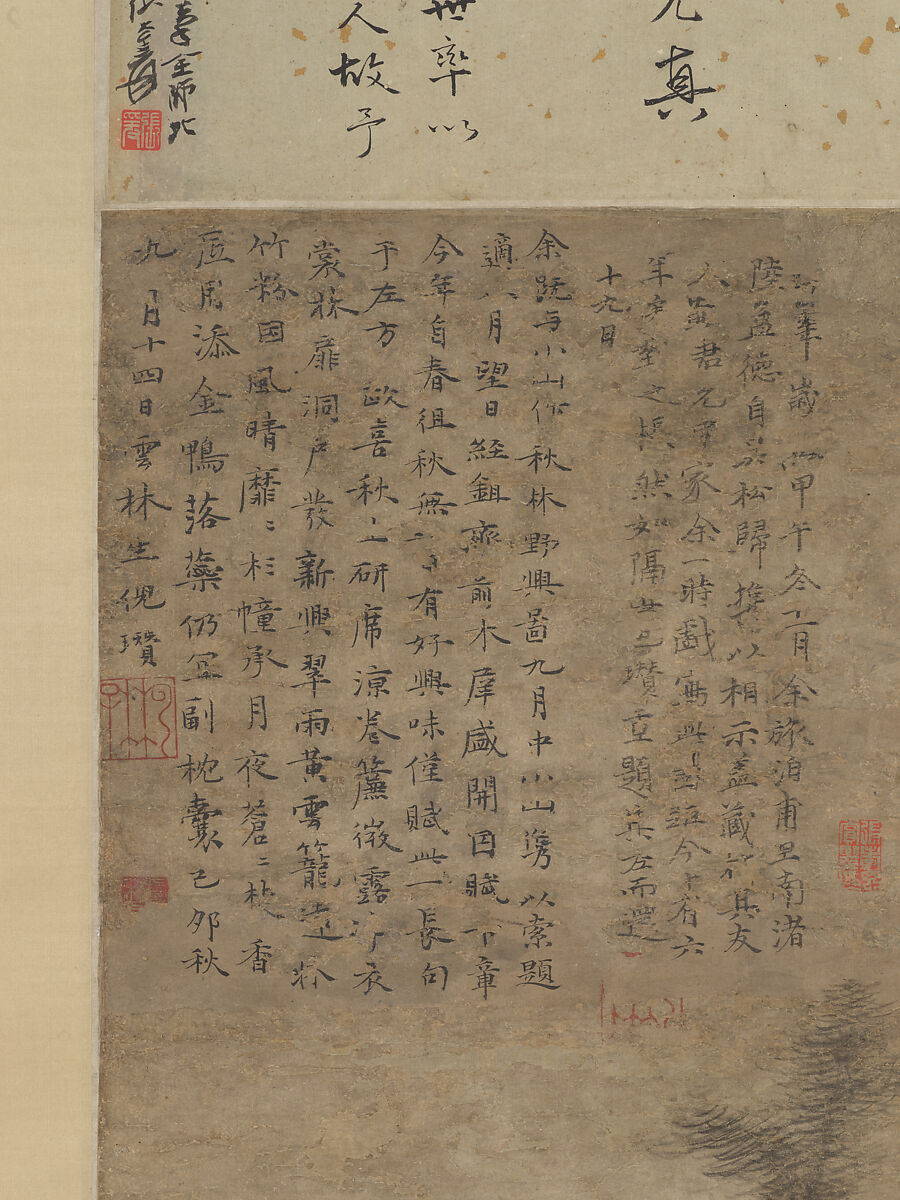 真
率以
人故予
年歲甲午冬十一月余旅泊甫里南渚
陸益德自吳松歸攜以相示蓋藏於其友
人黃君允中家余一時戲寫此圖距今十有六
年矣對之悵然如隔世也瓚重題其左而還
十九日
余既與小山作秋林野興圖九月中小山攜以索題
適八月望日經鉏齋前木犀盛開因賦下章
今年自春徂秋無一日有好興味僅賦此一長句
于左方政喜秋生研席涼卷簾微露淨衣
裳林扉洞戶發新興翠雨黃雲籠遠牀
竹粉因風晴靡〻杉幢承月夜蒼〻焚香
底用添金鴨落蘂仍宜副枕囊己卯秋
九月十四日雲林生倪瓚